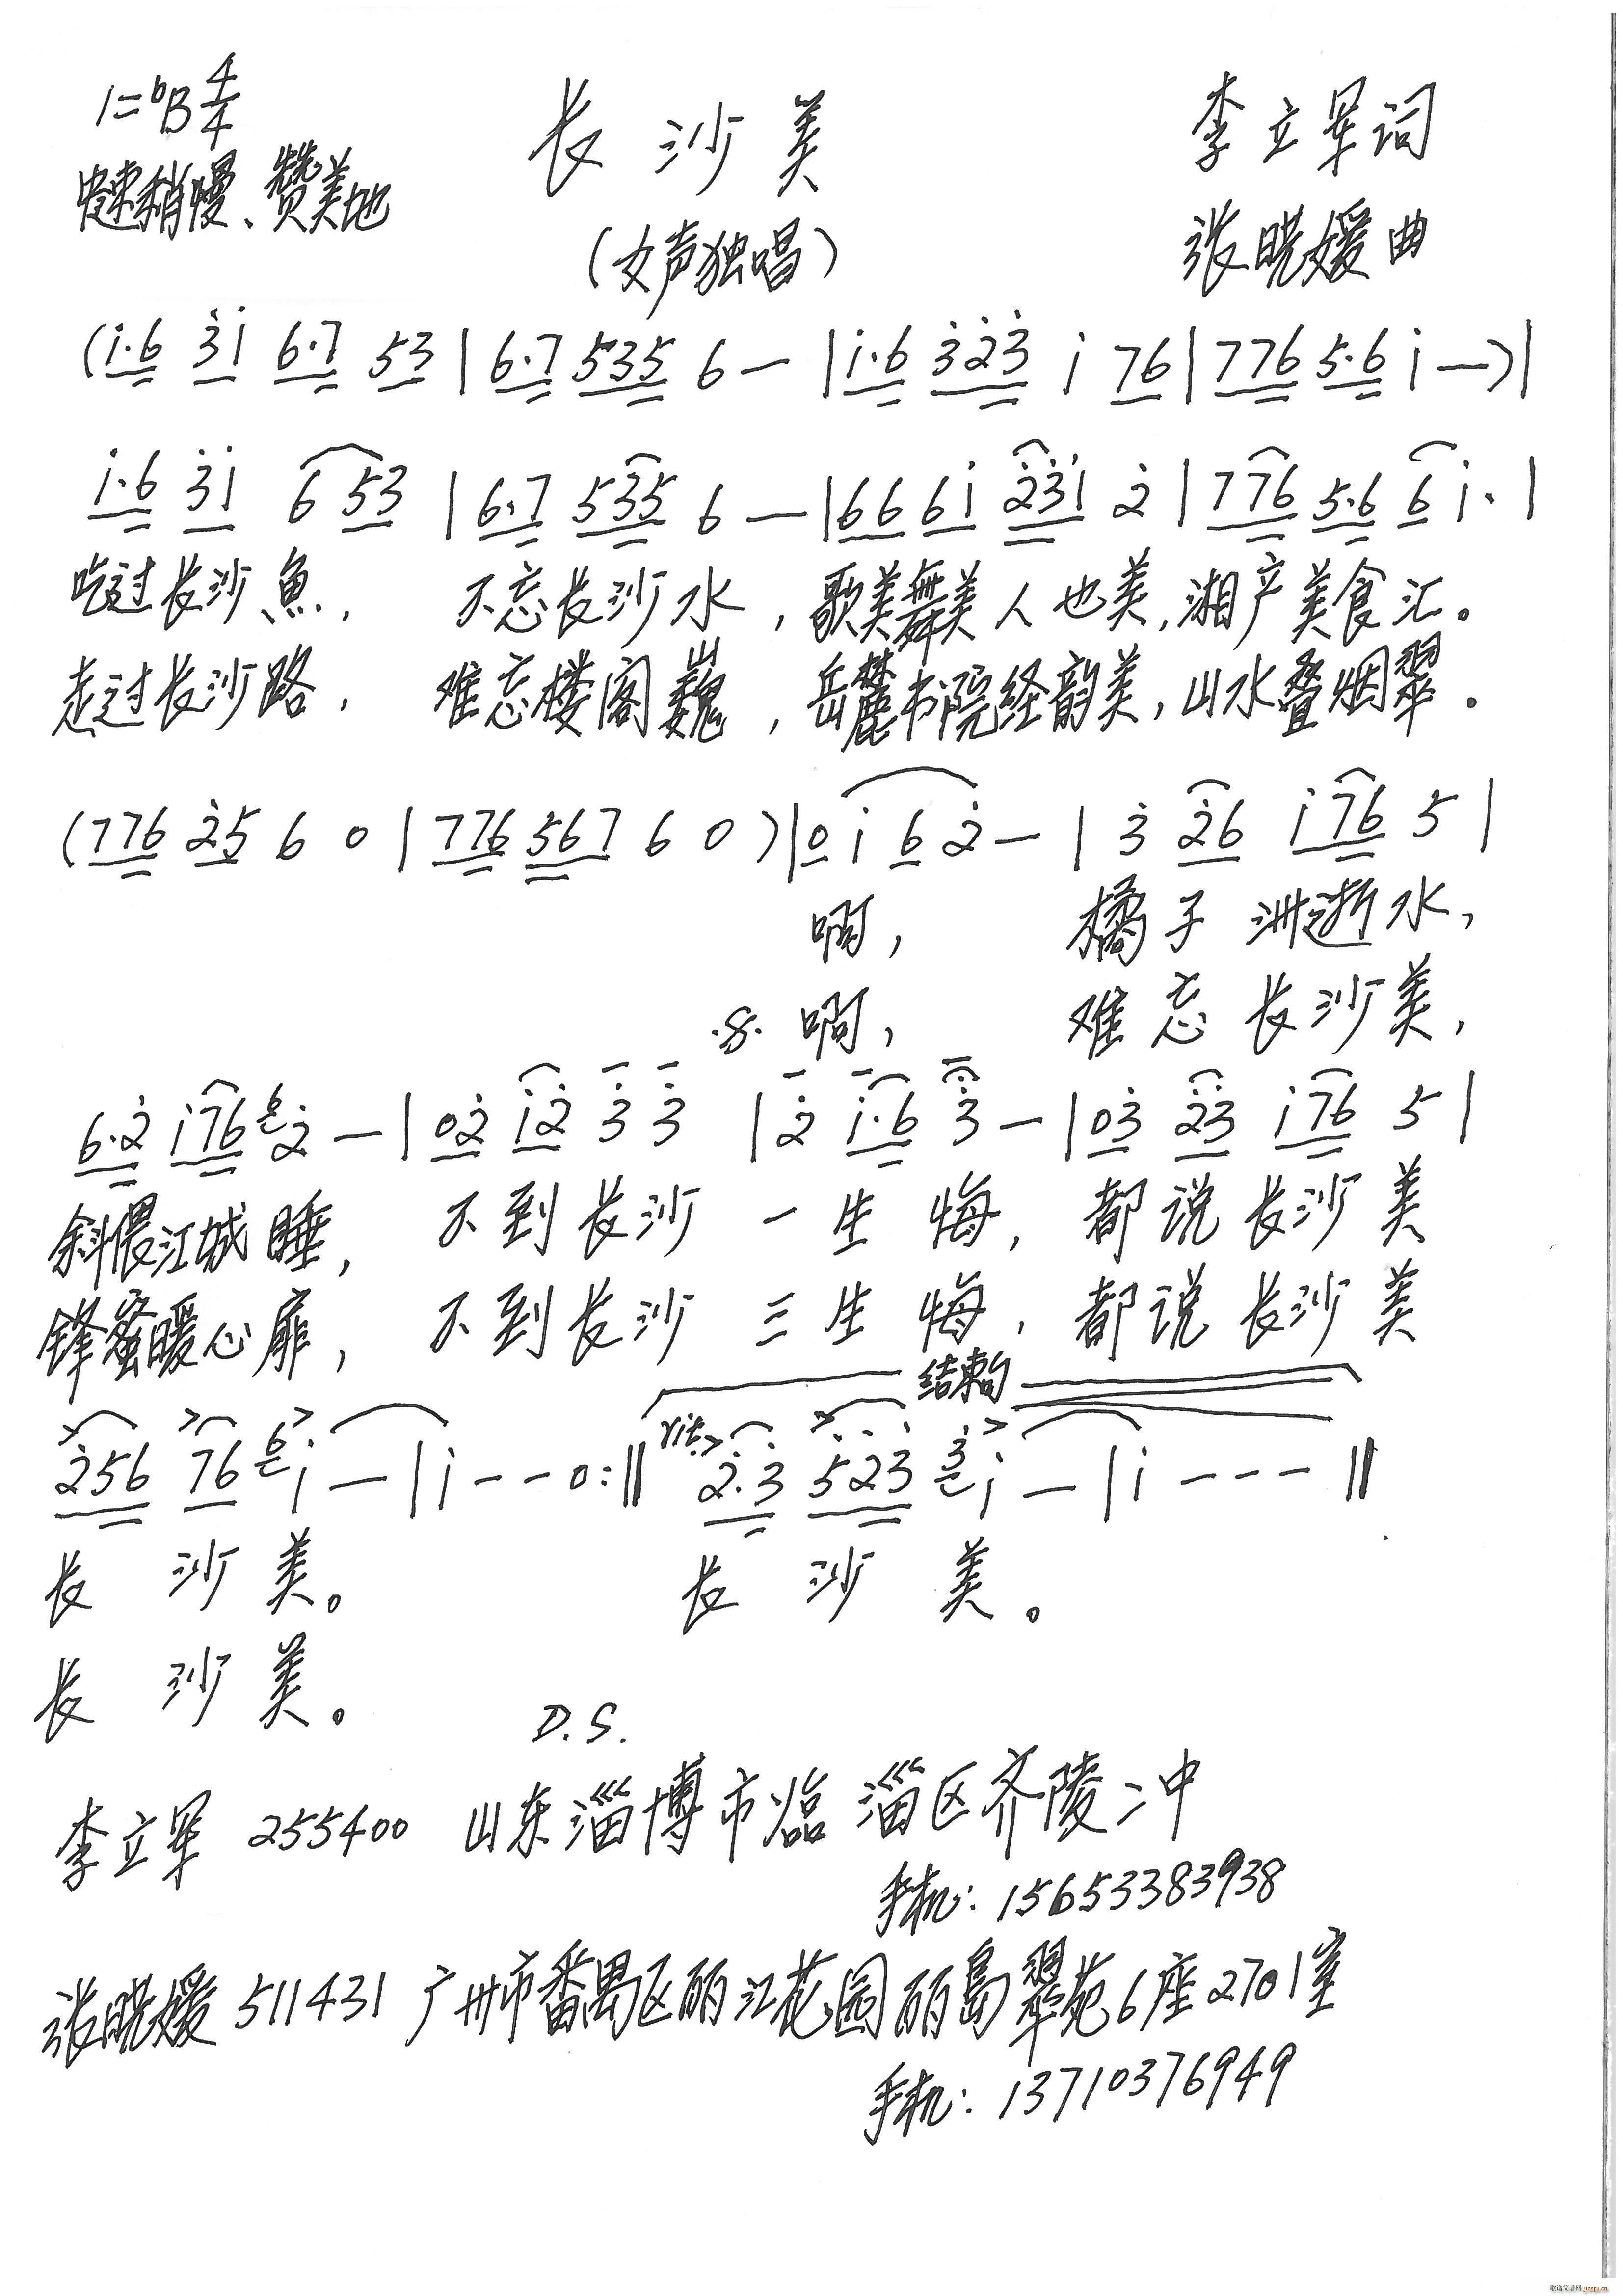 1=♭B 4/4
长沙美
李立军词
中速稍慢、赞美地
(女声独唱)
张晓媛曲
(i·6 3i 6·7 53|6·7 535 6—|i·6 323 i 76|776 5·6 i—)|
i·6 3i 6 53|6·7 535 6—|66 6i 23i 2|776 5·6 6 i·|
吃过长沙鱼, 不忘长沙水,歌美舞美人也美,湘产美食汇。
走过长沙路, 难忘楼阁巍,岳麓书院经韵美,山水叠烟翠.
(776 25 6 0|776 567 6 0)|0 i 6 2—|3 26 i76 5|
啊, 橘子洲逝水,
.S. 啊, 难忘长沙美,
6·2 i76 6 2—|02 i2 3 3|2 i·6 3—|03 23 i76 5|
斜偎江城睡, 不到长沙一生悔, 都说长沙美
锋蜜暖心扉, 不到长沙三生悔, 都说长沙美
结束句
rit.
256 76 6 i—|i--0:‖ 2·3 523 3 i—|i---‖
长沙美。 长沙美。
长沙美。
D.S.
李立军 255400 山东淄博市临淄区齐陵二中
手机:15653383938
张晓媛 511431 广州市番禺区丽江花园丽岛翠苑6座2701室
手机:13710376949
歌谱简谱网 jianpu.cn